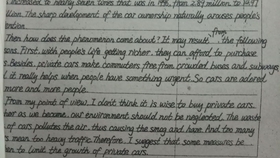 increased to nearly seven times that was in 1996, from 2.89 million to 19.91
llion. The sharp development of the car ownership naturally arouses people's
Then how does the phenomenon come about? It may result from the following
sons. First, with people's life getting richer, they can afford to purchase
s. Besides, private cars make commuters free from crowded buses and subways
it really helps when people have something urgent. So cars are adored
more and more people.
From my point of view, I don't think it is wise to buy private cars
her as we become, our environment should not be neglected. The waste
of cars pollutes the air, thus causing the smog and haze. And too many
mean too heavy traffic. Therefore, I suggest that some measures be
en to limit the growth of private cars.